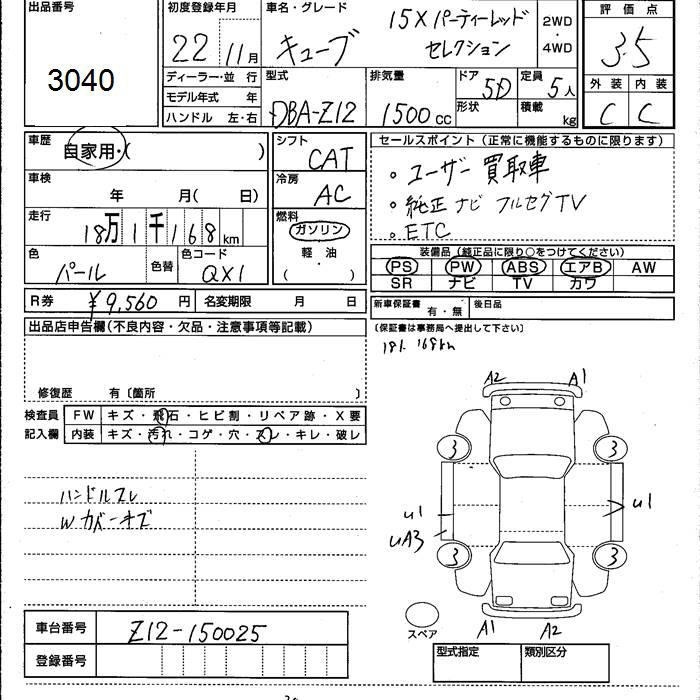 出品番号
3040
初度登録年月
22年 11月
車名・グレード
キューブ
15X パーティーレッド
セレクション
2WD
・
4WD
評価点
3.5
外装 内装
C C
ディーラー・並 行
モデル年式 年
ハンドル 左・右
型式
DBA-Z12
排気量
1500 cc
ドア
5D
形状
定員
5人
積載
kg
車歴
自家用・( )
車検
年 月( 日)
走行
18万1千168 km
色
パール
色替
色コード
QX1
シフト
CAT
冷房
AC
燃料
ガソリン
軽・油
( )
セールスポイント(正常に機能するものに限ります)
。ユーザー買取車
。純正ナビ フルセグTV
。ETC
装備品(純正品に限り○をつけてください)
PS PW ABS エアB AW
SR ナビ TV カワ
R券 ¥9,560 円
名変期限 月 日
新車保証書
有・無
後日品
(保証書は事務局へ提出して下さい)
出品店申告欄(不良内容・欠品・注意事項等記載)
181.168km
修復歴 有〔箇所 〕
検査員
記入欄
FW キズ・飛石・ヒビ割・リペア跡・X要
内装 キズ・汚れ・コゲ・穴・スレ・キレ・破レ
ハンドルスレ
Wカバーキズ
A2 A1
3 3
U1 U1
UA3
3 3
スペア
A1 A2
車台番号 Z12-150025
登録番号
型式指定 類別区分